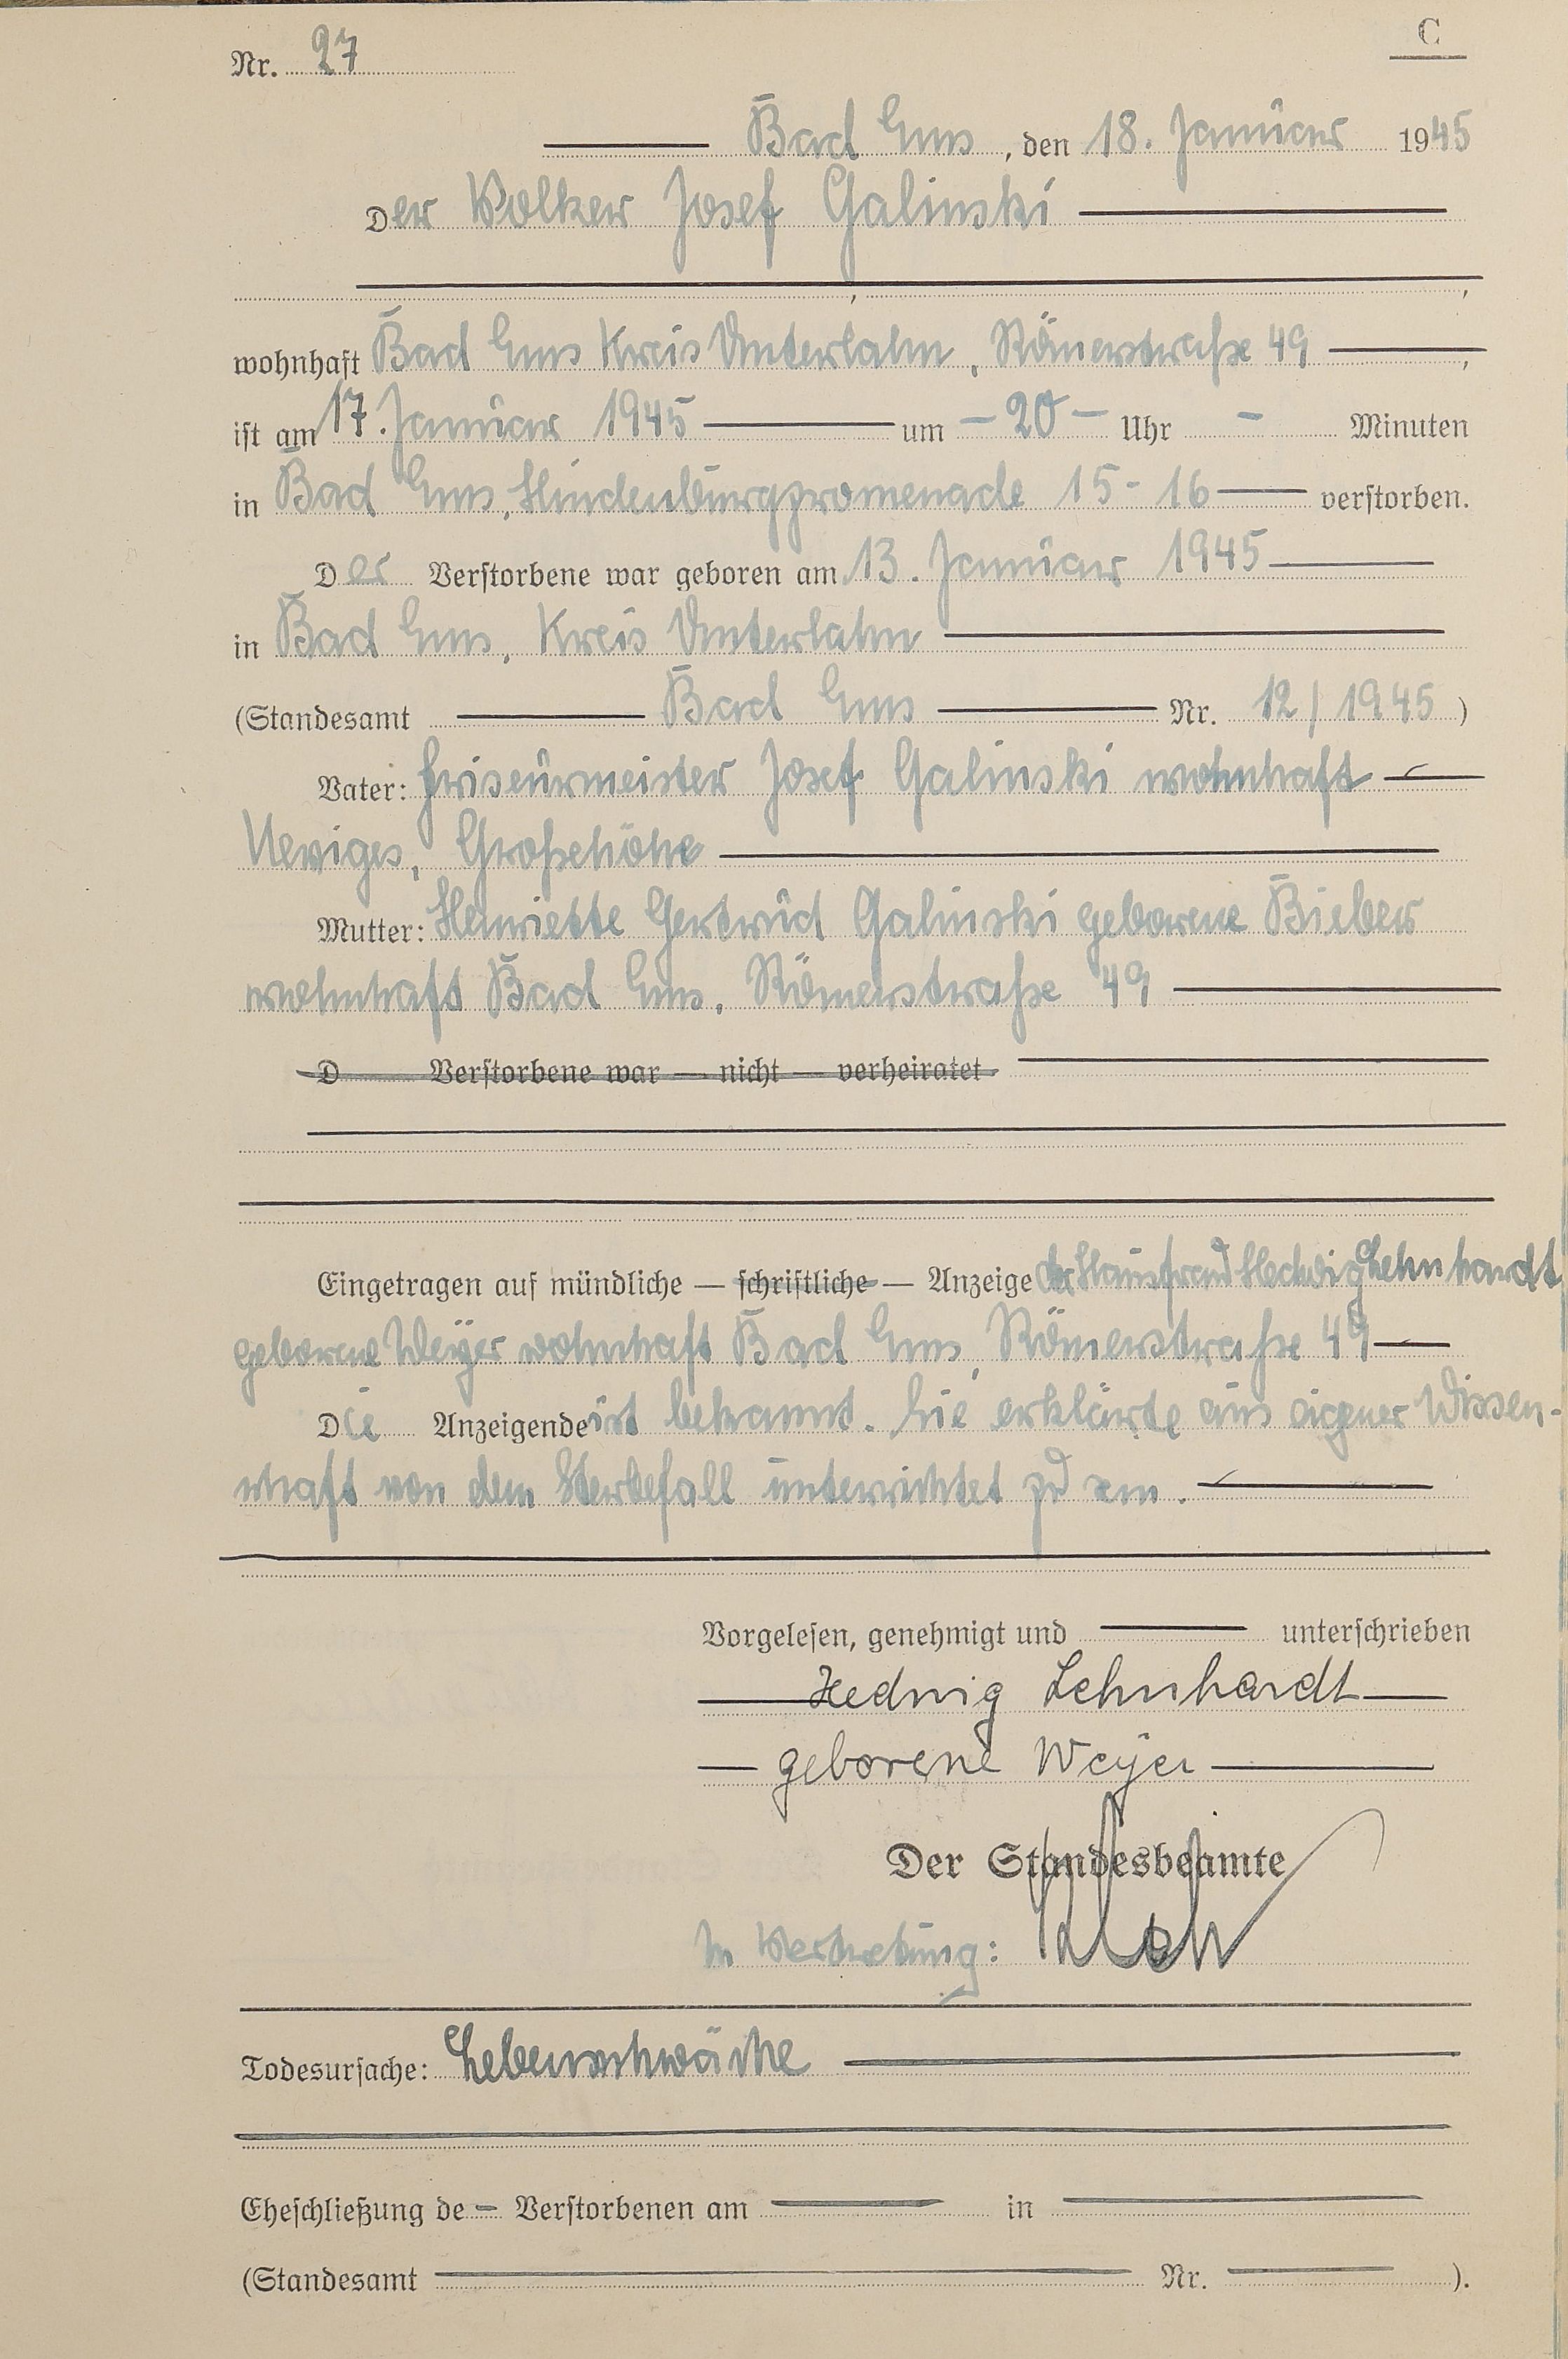 C
Nr. 27
Bad Ems, den 18. Januar 1945
Der Volker Josef Galinski
wohnhaft Bad Ems Kreis Unterlahn, Römerstraße 49,
ist am 17. Januar 1945 um - 20 - Uhr - Minuten
in Bad Ems, Hindenburgpromenade 15-16 verstorben.
Der Verstorbene war geboren am 13. Januar 1945
in Bad Ems, Kreis Unterlahn
(Standesamt Bad Ems Nr. 12/1945)
Vater: Friseurmeister Josef Galinski wohnhaft
Neviges, Großehöhe
Mutter: Henriette Gertrud Galinski geborene Bieber
wohnhaft Bad Ems, Römerstraße 49
D Verstorbene war — nicht — verheiratet
Eingetragen auf mündliche — schriftliche — Anzeige der Hausfrau Hedwig Lehnhardt
geborene Weyer wohnhaft Bad Ems, Römerstraße 49
Die Anzeigende ist bekannt. Sie erklärte aus eigener Wissen-
schaft von dem Sterbefall unterrichtet zu sein.
Vorgelesen, genehmigt und unterschrieben
Hedwig Lehnhardt
geborene Weyer
Der Standesbeamte
In Vertretung:
Todesursache: Lebensschwäche
Eheschließung de - Verstorbenen am in
(Standesamt Nr. ).